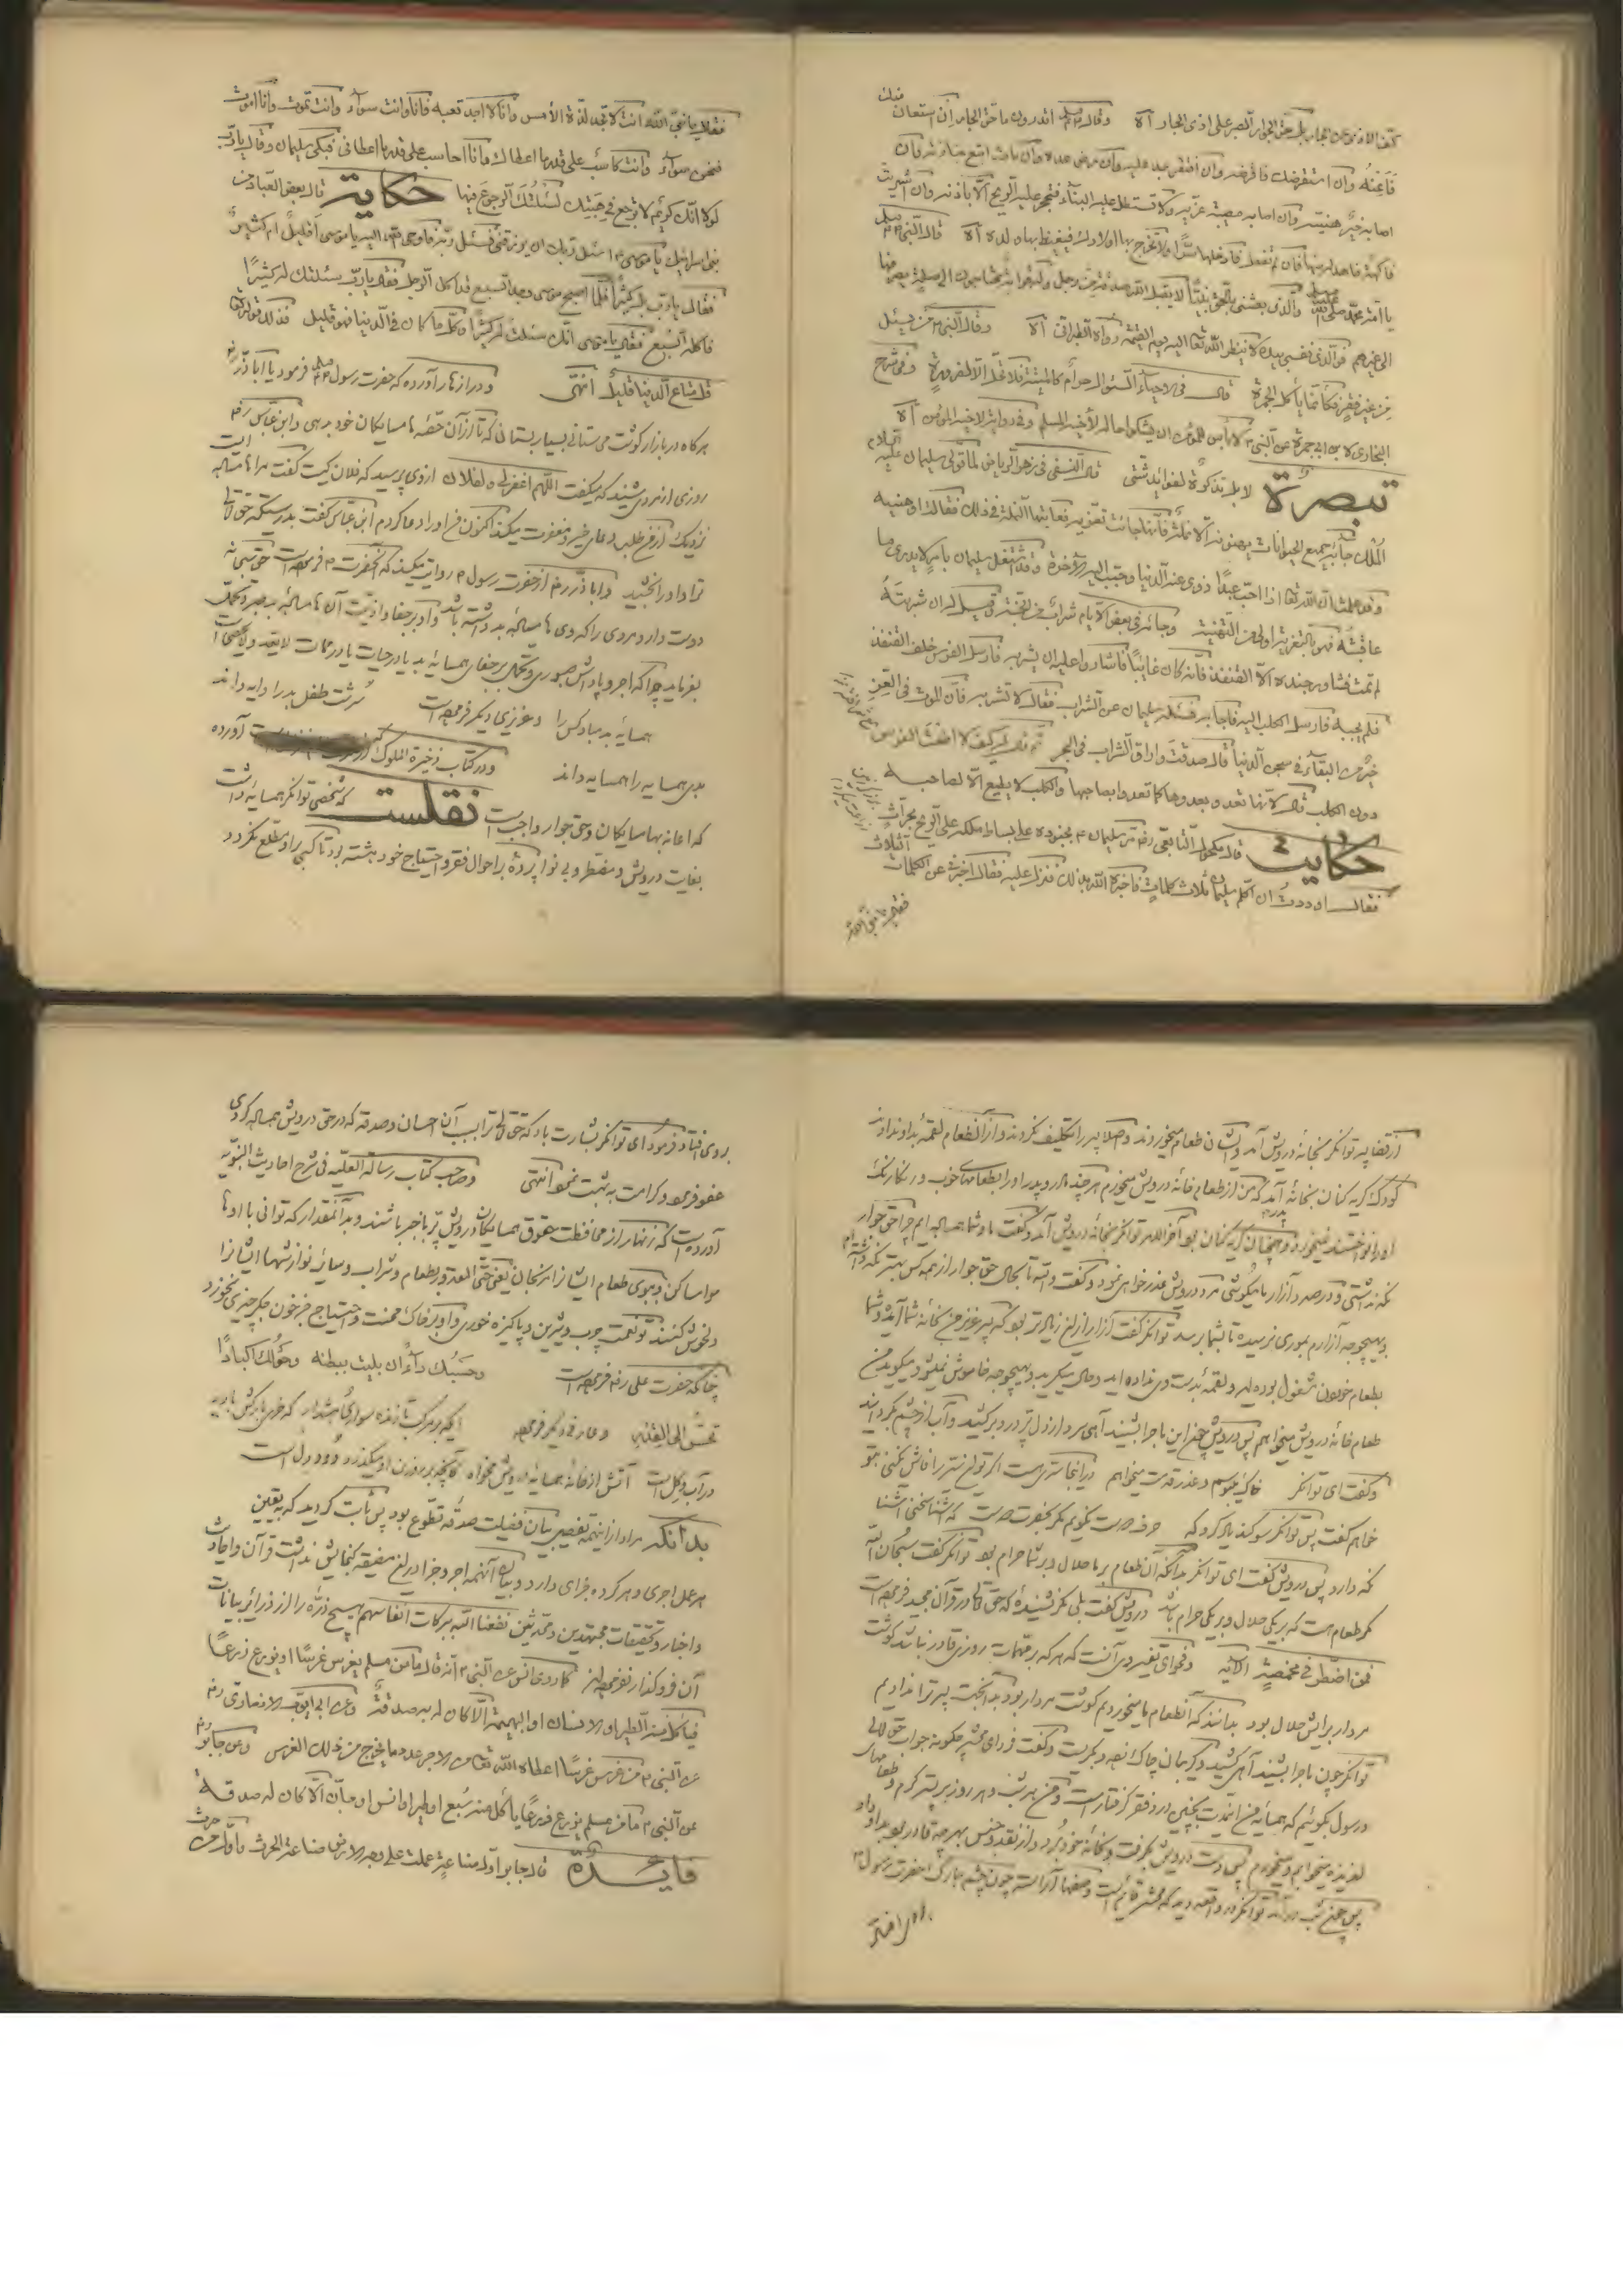 كف الاذى عن الجار بل حق الجوار الصبر على اذى الجار آه وقال صلم اتدرون ما حق الجار ان استعان
فاعنته وان استقرضك فاقرضه وان افتقر عدت عليه وان مرض عدته وان مات اتبع جنازته وان
اصابه خير هنيته وان اصابه مصيبة عزيته ولا تستطل عليه البناء فتحجر عليه الريح الا باذنه وان اشتريت
فاكهة فاهد له منها فان لم تفعل فادخلها سرا ولا تخرج بها اولادك فيغيظ بها ولده آه قال النبي صلم
يا امة محمد صلى الله عليه وسلم والذي بعثني بالحق نبيا لا يقبل الله صدقة من رجل وله قرابة محتاجون الى صلته يصرفها
الى غيرهم والذي نفسي بيده لا ينظر الله تعا اليه يوم القيمة رواه الطبراني آه وقال النبي من يسئل
من غير فقر فكانما يأكل الجمرة قال في الاحياء السئوال حرام كالميتة فلا تحل الا لضرورة وفي شرح
البخاري لابن ابي جمرة عن النبي لا بأس للمؤمن ان يشكوا حاله لأخيه المسلم وفي رواية لاخيه المؤمن آه
تبصرة لا بل تذكرة لفوائد شتى قال النسفي في زهر الرياض لما تولى سليمان عليه السلام
الملك جاءته جميع الحيوانات يهنونه الا نملة فانها جائت تعزيه فعاتبتها النملة في ذلك فقالت اوهنيه
وقد علمت ان الله تعا اذا احب عبدا زوى عنه الدنيا وحبب اليه الآخرة وقد اشتغل سليمان بامر لا يدري ما
عاقبته فهو بالتعزية اولى من التهنية وجائه في بعض الايام شراب من الجنة وقيل له ان شربته
لم تمت فشاور جنده الا القنفذ فانه كان غايبا فاشاروا عليه ان يشربه فارسل الفرس خلف القنفذ
فلم يجبه فارسل الكلب اليه فاجابه فسئله سليمان عن الشراب فقال لا تشربه فان الموت في العز
خير من البقاء في سجن الدنيا قال صدقت واراق الشراب في البحر ثم قال له كيف لا اطعت الفرس
دون الكلب قال لانها تعدو بعدوها كما تعدوا بصاحبها والكلب لا يطيع الا لصاحبه
حكايت قال مكحول التابعي رضه مر سليمان بجنوده على بساط ملكه على الريح بحراث
فقال اوددت ان اكلم سليمان ثلاث كلمات فاخبره الله بذلك فنزل عليه فقال اخبرني عن الكلمات الثلاث
فقال يا نبي الله
فقال يا نبي الله انت لا تجد لذة الأمس وانا لا اجد تعبه فانا وانت سواء وانت تموت وانا اموت
فنحن سواء وانت تحاسب على قدر ما اعطاك وانا احاسب على قدر ما اعطاني فبكى سليمان وقال يا رب
لولا انك كريم لا ترجع في هبتك لسئلتك الرجوع فيها حكاية قال بعض العباد من
بني اسرائيل يا موسى اسئل ربك ان يرزقني فسئل ربه فاوحى الله اليه يا موسى أقليل ام كثير
فقال يا رب بل كثيرا فلما اصبح موسى وجد السبع قد اكل الرجل فقال يا رب سئلتك له كثيرا
فاكله السبع فقال يا موسى انك سئلت له كثيرا وكل ما كان في الدنيا فهو قليل فذلك قوله تعا
قل متاع الدنيا قليل انتهى ودر ازهار آورده كه حضرت رسول صلم فرمود يا اباذر
هركاه در بازار كوشت مى ستانى بسيار بستان كه تا از آن حقه همسايكان خود بدهى وابن عباس رضه
روزى از مردى شنيد كه ميكفت اللهم اغفر لى ولفلان از وى پرسيد كه فلان كيست كفت مرا همسايه است
نزديك از من طلب دعاى خير ومغفرت ميكند اكنون من او را دعا كردم ابن عباس كفت بدرستيكه حق تعالى
ترا واو را بخشيد وابا ذر رضه از حضرت رسول روايت ميكند كه آنحضرت فرموده است حق سبحانه
دوست دارد مردى را كه وى همسايه بد داشته باشد واو بر جفا واذيت آن همسايه بد صبر وتحمل
بفرمايد چرا كه اجر وپاداش صبورى وتحمل بر جفاى همسايه بد يا درجات يا درجات لا يعد ولا يحصى است
همسايه بد مبادكس را وعزيزى ديكر فرموده است سرشت طفل بد را دايه داند
بدى همسايه را همسايه داند ودر كتاب ذخيرة الملوك آورده
كه اعانه بهمسايكان وحق جوار واجب است نقلست كه شخصى توانكر همسايه داشت
بغايت درويش ومضطر وبى نوا پرده بر احوال فقر واحتياج خود هشته بود تا كسى بر او مطلع نكردد
از قضا پسر توانكر بخانه درويش آمد وايشان طعام ميخوردند واصلا پسر را تكليف نكردند واز آن طعام لقمه بدو ندادند
كودك كريه كنان بخانه آمد كه من از طعام خانه درويش ميخورم هر چند مادر وپدر او را بطعامهاى خوب ورنكارنك
او را نواختند نميخورد وهمچنان كريه كنان بود آخر الامر توانكر بخانه درويش آمد وكفت ما وشما همسايه ايم چرا حق جوار
نكه نداشتى ودر صدد آزار ما ميكوشى مرد درويش عذر خواهى نمود وكفت والله تا بحال حق جوار از همه كس بهتر نكه داشته ام
وبهيچوجه آزارم بمورى نرسيده تا بشما برسد توانكر كفت آزار از اين زياده تر بود كه پسر عزيز من بخانه شما آمده وشما
بطعام خوردن مشغول بوده ايد ولقمه بدست وى نداده ايد وحال ميكريد وبهيچوجه خاموش نميشود وميكويد من
طعام خانه درويش ميخواهم پس درويش چون اين ماجرا بشنيد آهى سرد از دل پر درد بركشيد وآب از چشم بكردانيد
وكفت اى توانكر خاك پايت بوسم وعذر قدمت ميخواهم در اينجا سرى است اكر تو اين سر را فاش نكنى بتو
خواهم كفت پس توانكر سوكند ياد كرد كه حرف دوست نكويم مكر بحضرت دوست كه آشنا سخن آشنا
نكه دارد پس درويش كفت اى توانكر بدانكه آن طعام بر ما حلال وبر شما حرام بود توانكر كفت سبحان الله
مكر طعام هست كه بر يكى حلال وبر يكى حرام باشد درويش كفت بلى مكر نشنيده كه حق تعالى در قرآن مجيد فرموده است
فمن اضطر في مخمصة الآيه وفحواى تفسير وى آنست كه هر كه بر مهمات روزى قادر نباشد كوشت
مردار برايش حلال بود بدانند كه آنطعام ما ميخورديم كوشت مردار بود بدانجهت پسر ترا نداديم
توانكر چون ماجرا بشنيد آهى كشيد وكريبان چاك نمود وبكريست وكفت فرداى محشر چكونه جواب حق تعالى
ورسول بكويم كه همسايه من اينمدت بچنين درد فقر كرفتار است ومن هر شب وهر روز بر بستر كرم وطعامهاى
لذيذه ميخوابم وميخورم پس دست درويش بكرفت وبخانه خود برد واز نقد وجنس بهر چه قادر بود بدو داد
پس چون شب در آمد توانكر در واقعه ديد كه محشر قايم است وصفها آراسته چون چشم مبارك حضرت رسول
بروى افتاد فرمود اى توانكر بشارت باد كه حق تعالى ترا بسبب آن احسان وصدقه كه در حق درويش همسايه كردى
عفو فرمود وكرامت بهشت نمود انتهى وصاحب كتاب رسالة العلية في شرح احاديث النبوية
آورده است كه زنهار از محافظت حقوق همسايكان درويش پر باخبر باشند وبدآنمقدار كه توانى با او ها
مواسا كن وببوى طعام ايشانرا مرنجان يعنى حتى المقدور بطعام وشراب وساير نوازشها ايشانرا
دلخوش كنند تو نعمت چرب وشيرين وپاكيزه خورى واو بر خاك محنت واحتياج جز خون جكر چيزى نخورد
چنانكه حضرت على رضه فرموده است وحسبك داء ان تبيت ببطنة وحولك اكبادا
تحن الى القد وعارف ديكر فرموده ايكه بر مركب تازنده سوارى هشدار كه خر خاركش
در آب وكل است آتش از خانه همسايه درويش مخواه كانچه بر روزن او ميكذرد دود دل است
بدانكه مراد از اينهمه تفصيل بيان فضيلت صدقه تطوع بود پس ثابت كرديد كه يقين
هر عمل اجرى وهر كرده جزاى دارد وبيان آنهمه اجر وجزا در اين مضيقه كنجايش نداشت قرآن واحاديث
واخبار وتحقيقات مجتهدين ومحدثين نفعنا الله ببركات انفاسهم هيچ ذره را از ذرائر بيانات
آن فروكذار نفرموده اند كما روى انس عن النبي انه قال ما من مسلم يغرس غرسا او يزرع زرعا
فيأكل منه الطير او الانسان او البهيمة الا كان له به صدقة وعن ابي ايوب الانصاري رضه
عن النبي من غرس غرسا اعطاه الله تعا من الاجر عدد ما يخرج من ذلك الغرس وعن جابر رضه
عن النبي ما من مسلم يزرع فزرعا يأكل منه سبع او طير او انس او جان الا كان له صدقة
فايدة قال جابر اول صناعة عملت على وجه الارض صناعة الحرث واول من حرث